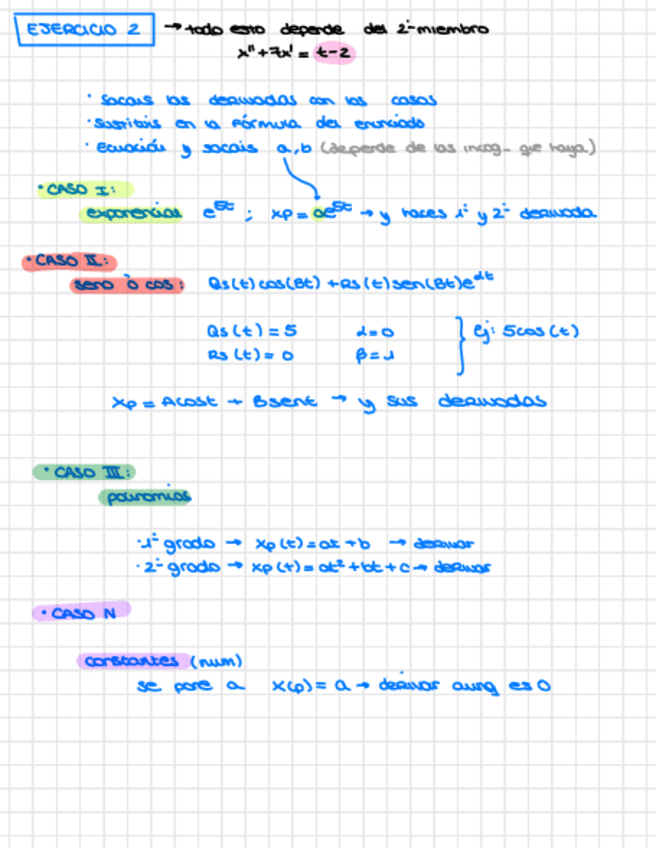 EJERCICIO 2 → todo esto depende del 2º miembro
x'' + 7x' = t-2
· Sacais las derivadas con los casos
· Sustituis en la fórmula del enunciado
· Ecuación y sacais a,b (depende de las incog. que haya)
· CASO I:
exponencial e^5t ; xp = ae^5t → y haces 1ª y 2ª derivada
· CASO II:
seno o cos: Qs(t) cos(Bt) + Rs(t) sen(Bt)e^αt
Qs(t) = 5 α=0 } Ej: 5cos(t)
Rs(t) = 0 β=1
xp = Acost + Bsent → y sus derivadas
· CASO III:
polinomios
· 1º grado → xp(t) = at + b → derivar
· 2º grado → xp(t) = at² + bt + c → derivar
· CASO IV
constantes (num)
se pone a x(p) = a → derivar aunq es 0